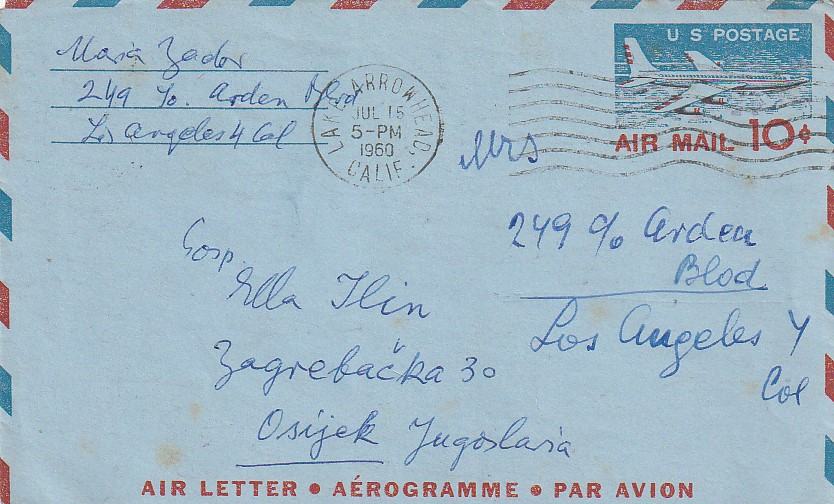 Maria Zador
249 %. Arden Blvd
Los Angeles 4 Cal
LAKE ARROWHEAD, CALIF.
JUL 15
5-PM
1960
U S POSTAGE
AIR MAIL 10¢
Mrs
249 % Arden
Blvd
Los Angeles 4
Cal
Gosp.
Ella Ilin
Zagrebačka 30
Osijek Jugoslavia
AIR LETTER • AÉROGRAMME • PAR AVION